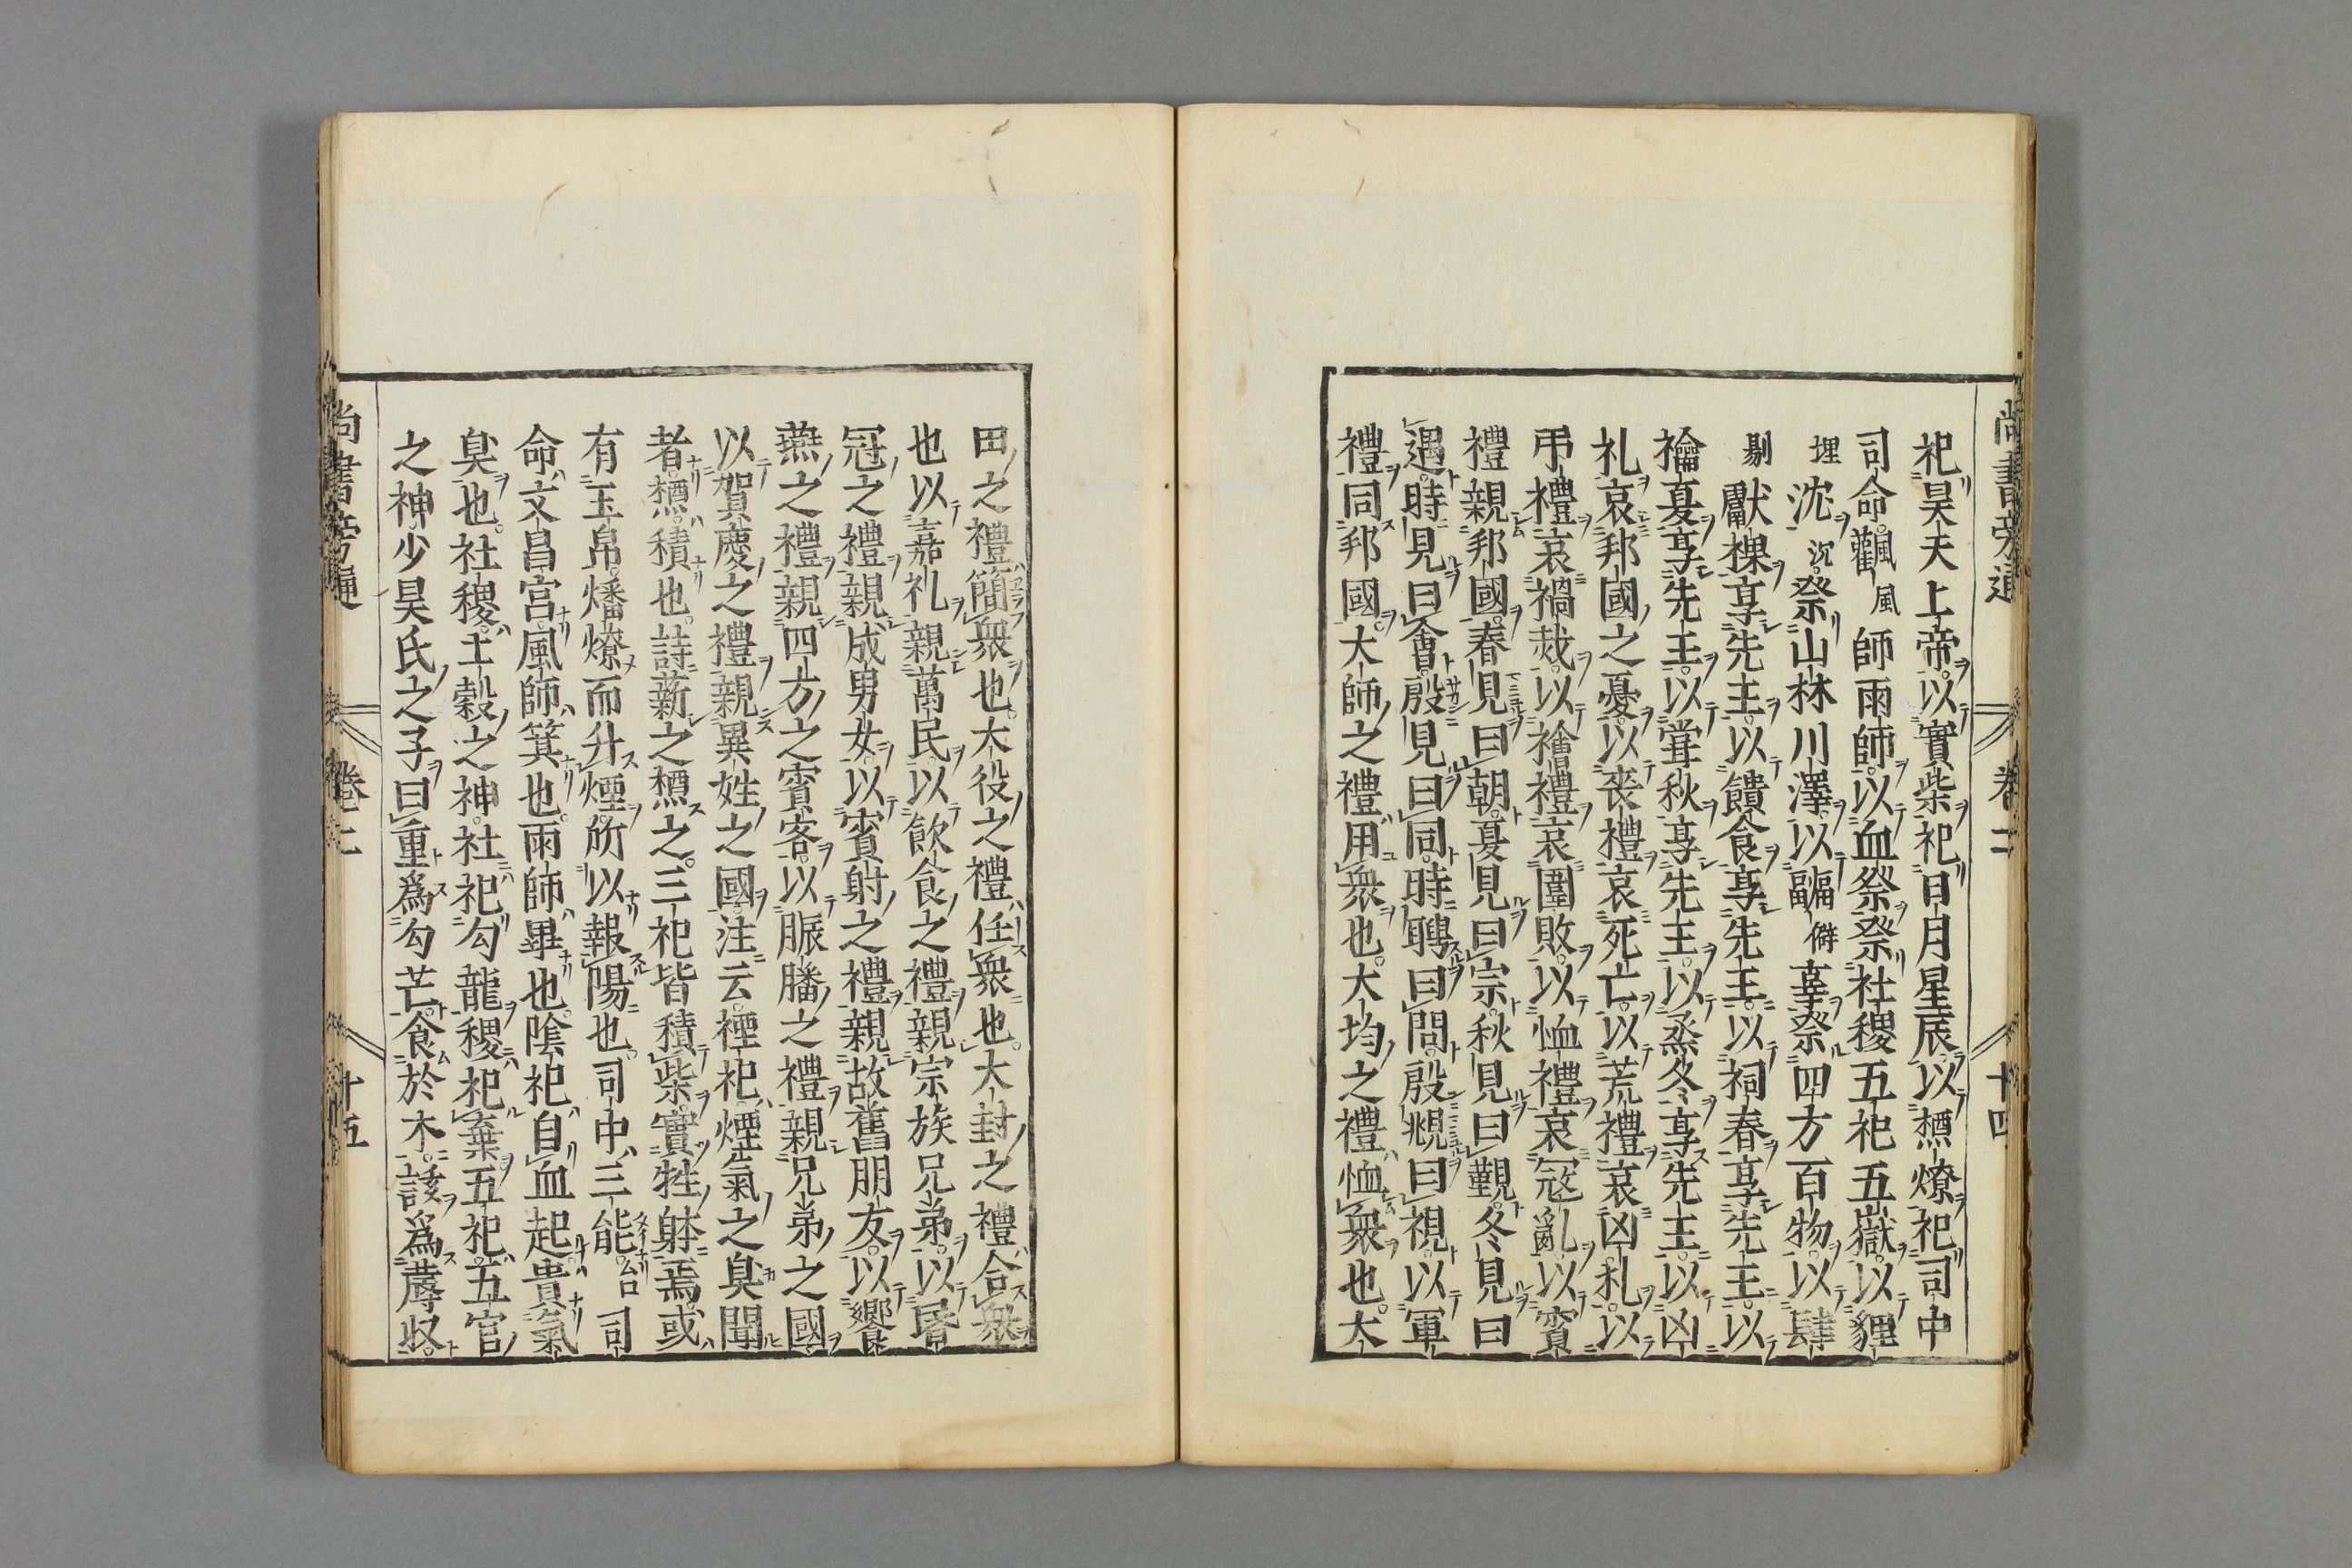 尚書旁通 卷二 十四
祀昊天上帝以實柴祀日月星辰以槱燎祀司中
司命飌風師雨師以血祭祭社稷五祀五嶽以貍
埋沈沉祭山林川澤以疈僻辜祭四方百物以肆
剔獻祼享先王以饋食享先王以祠春享先王以
禴夏享先王以嘗秋享先王以烝冬享先王以凶
礼哀邦國之憂以喪禮哀死亡以荒禮哀凶札以
弔禮哀禍烖以禬禮哀圍敗以恤禮哀寇亂以賓
禮親邦國春見曰朝夏見曰宗秋見曰覲冬見曰
遇時見曰會殷見曰同時聘曰問殷覜曰視以軍
禮同邦國大師之禮用衆也大均之禮恤衆也大
田之禮簡衆也大役之禮任衆也大封之禮合衆
也以嘉礼親萬民以飲食之禮親宗族兄弟以昬
冠之禮親成男女以賓射之禮親故舊朋友以饗
燕之禮親四方之賓客以脤膰之禮親兄弟之國
以賀慶之禮親異姓之國注云禋祀煙氣之臭聞
者槱積也詩薪之槱之三祀皆積柴實牲躰焉或
有玉帛燔燎而升煙所以報陽也司中三能台司
命文昌宮風師箕也雨師畢也陰祀自血起貴氣
臭也社稷土穀之神社祀勾龍稷祀棄五祀五官
之神少昊氏之子曰重爲勾芒食於木該爲蓐收
尚書旁通 卷二 十五